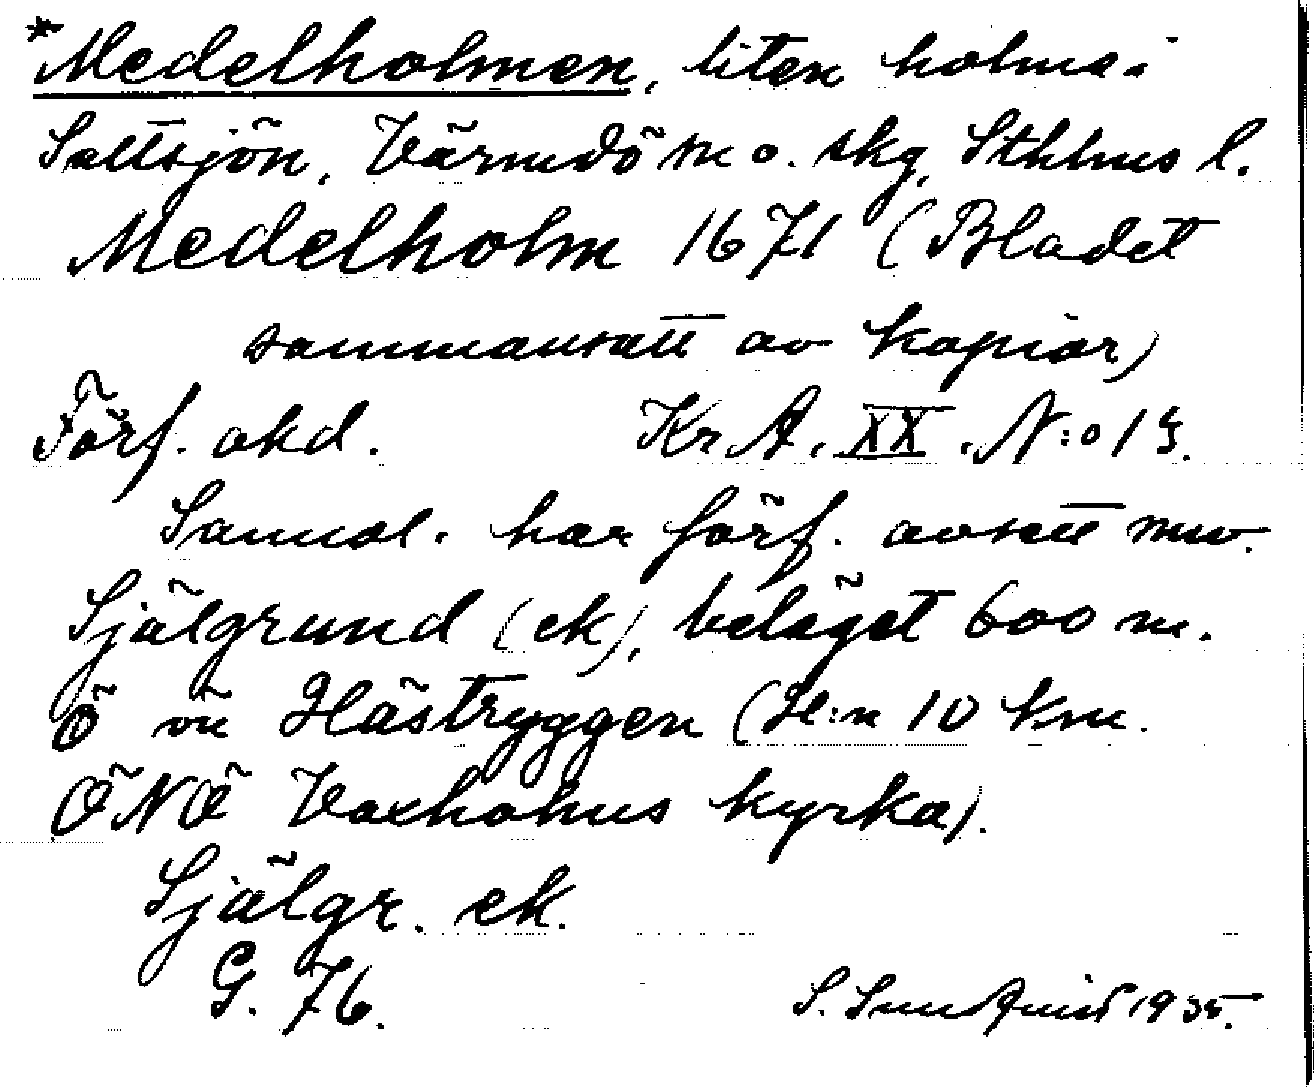 *Medelholmen, liten holme i
Saltsjön, Värmdö sn o. skg, Sthlms l.
Medelholm 1671 (Bladet
sammansatt av kopior)
Förf. okd. KrA. XX. N:o 13.
Sannol. har förf. avsett nuv.
Själgrund (ek), beläget 600 m.
Ö om Hästryggen (H:n 10 km.
ÖNÖ Vaxholms kyrka).
Själgr. ek.
G. 76.
S. Sundquist 1935.